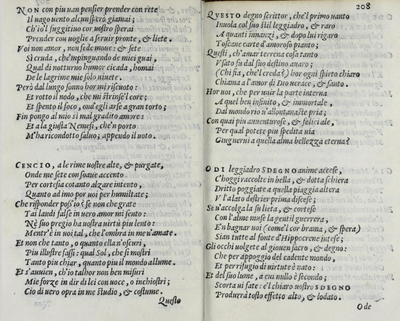 NON con piu van pensier prender con rete
Il vago vento alcun sperò giamai;
Ch'io'l suggetivo cor vostro sperai
Prender con voglie a fruir pronte, & liete.
Voi non amor, non fede move: & sete
Sì cruda, che'mpinguando de miei guai,
Qual di notturno humor cicada, homai
De le lagrime mie solo vivete.
Però dal lungo sonno hor mi riscuoto:
Et rotto il nodo, che mi strinse il core;
Et spento il foco, ond'egli arse a gran torto,
Fin pongo al mio sì mal gradito amore:
Et a la giusta Nemesi, che'n porto
M'ha ricondotto salvo; appendo il voto.
CENCIO, a le rime vostre alte, & purgate,
Onde me sete con soave accento
Per cortesia cotanto alzare intento,
Quanto a dimo por voi per humiltate;
Che risponder poss'io? se non che grate
Tai laudi false in vero amor mi sento:
Nè suo pregio ha nostra virtù piu lento:
Ment'è in voi tal, che l'ombra in me n'amate.
Et non che tanto, o quanto ella n'oscuri,
Piu illustre fassi: qual Sol, che si mostri
Tanto piu chiar, quanto piu il mondo allume.
Et s'avvien, ch'io talhor non ben misuri
Mie forze in dir di lei con voce, o inchiostri;
Cio di vero opra in me studio, & costume.
Questo
208
QUESTO degno scrittor, che'l primo vanto
Invola col suo stil leggiadro, & raro
A quanti innanzi, & dopo lui rigaro
Toscane carte d'amoroso pianto;
Questi, ch'amar terrena cosa tanto
Vsato fu dal suo destino avaro;
(Chi fia, che'l creda?) hor ogni spirto chiaro
Chiama a l'amor di Dio verace, & santo.
Hor noi, che per uscir la parte interna
A quel ben infinito, & immortale,
Dal mondo rio n'allontanaste pria;
Con qual piu ament'orreste, & felici ale,
Per qual potete piu spedita via
Giugnerni a quella alma bellezza eterna?
O DI leggiadro SDEGNO anime accese,
Ch'oggi raccolte in bella, & dotta schiera
Dritto poggiate a quella piaggia altera
V' l'alato destrier prima discese;
Se n'accolga la su lieta, & cortese
Con l'alme muse la gentil guerrera,
En bagnar voi (come'l cor brama, & spera)
Sian tutte al fonte d'Hippocrene intese;
Gli occhi volgete al gioven sacro, & degno:
Che per appoggio del cadente mondo,
Et per rifugio di virtute è nato:
Et del suo lume, a cui nullo è secondo;
Scorta vi fate: e'l chiaro vostro SDEGNO
Produrrà tosto effetto alto, & lodato.
O de